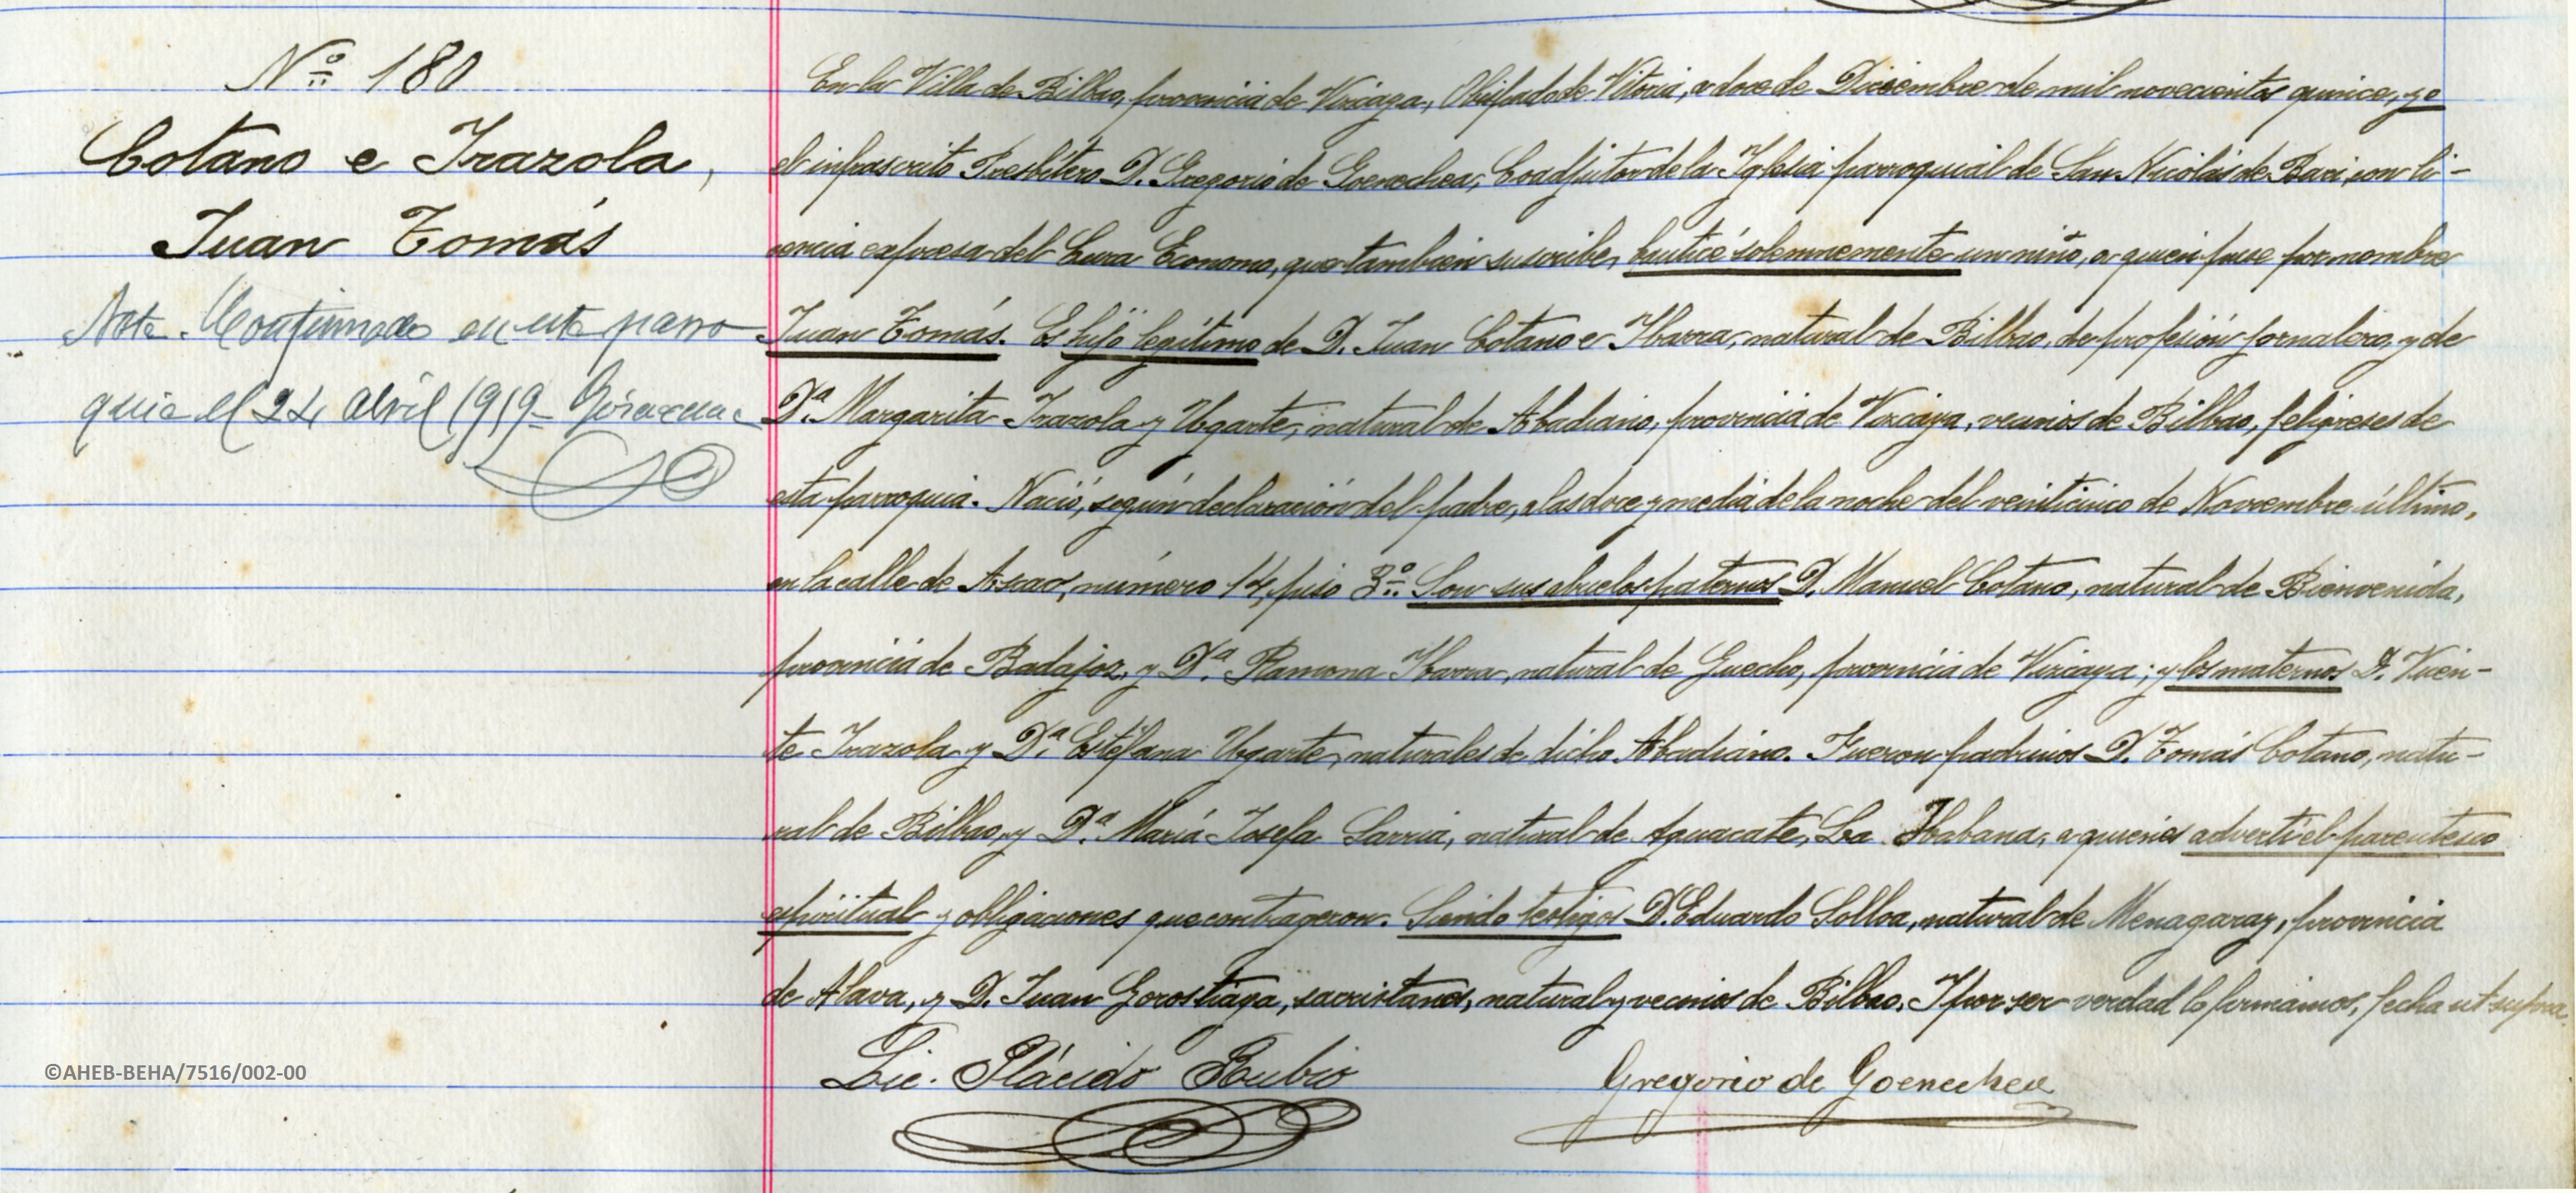 Nº 180
Cotano e Irazola,
Juan Tomás
Nota. Confirmado en esta parro
quia el 24 abril 1919-
En la Villa de Bilbao, provincia de Vizcaya, Obispado de Vitoria, a doce de Diciembre de mil novecientos quince, yo
el infrascrito Presbítero D. Gregorio de Goenechea, Coadjutor de la Iglesia parroquial de San Nicolás de Bari, con li-
cencia expresa del Cura Ecónomo, que también suscribe, bauticé solemnemente un niño, a quien puse por nombre
Juan Tomás. Es hijo legítimo de D. Juan Cotano e Ibarra, natural de Bilbao, de profesión jornalero, y de
Dª. Margarita Irazola y Ugarte, natural de Abadiano, provincia de Vizcaya, vecinos de Bilbao, feligreses de
esta parroquia. Nació, según declaración del padre, a las doce y media de la noche del veinticinco de Noviembre último,
en la calle de Ascao, número 14, piso 3º. Son sus abuelos paternos D. Manuel Cotano, natural de Bienvenida,
provincia de Badajoz, y Dª. Ramona Ibarra, natural de Guecho, provincia de Vizcaya; y los maternos D. Vicen-
te Irazola y Dª. Estéfana Ugarte, naturales de dicho Abadiano. Fueron padrinos D. Tomás Cotano, natu-
ral de Bilbao, y Dª. María Josefa Sarria, natural de Aguacate, La Habana, a quienes advertí el parentesco
espiritual y obligaciones que contrageron. Siendo testigos D. Eduardo Solloa, natural de Menagaray, provincia
de Alava, y D. Juan Gorostiaga, sacristanes, natural y vecinos de Bilbao. Y por ser verdad lo firmamos, fecha ut supra.
Lic. Plácido Rubio
Gregorio de Goenechea
©AHEB-BEHA/7516/002-00